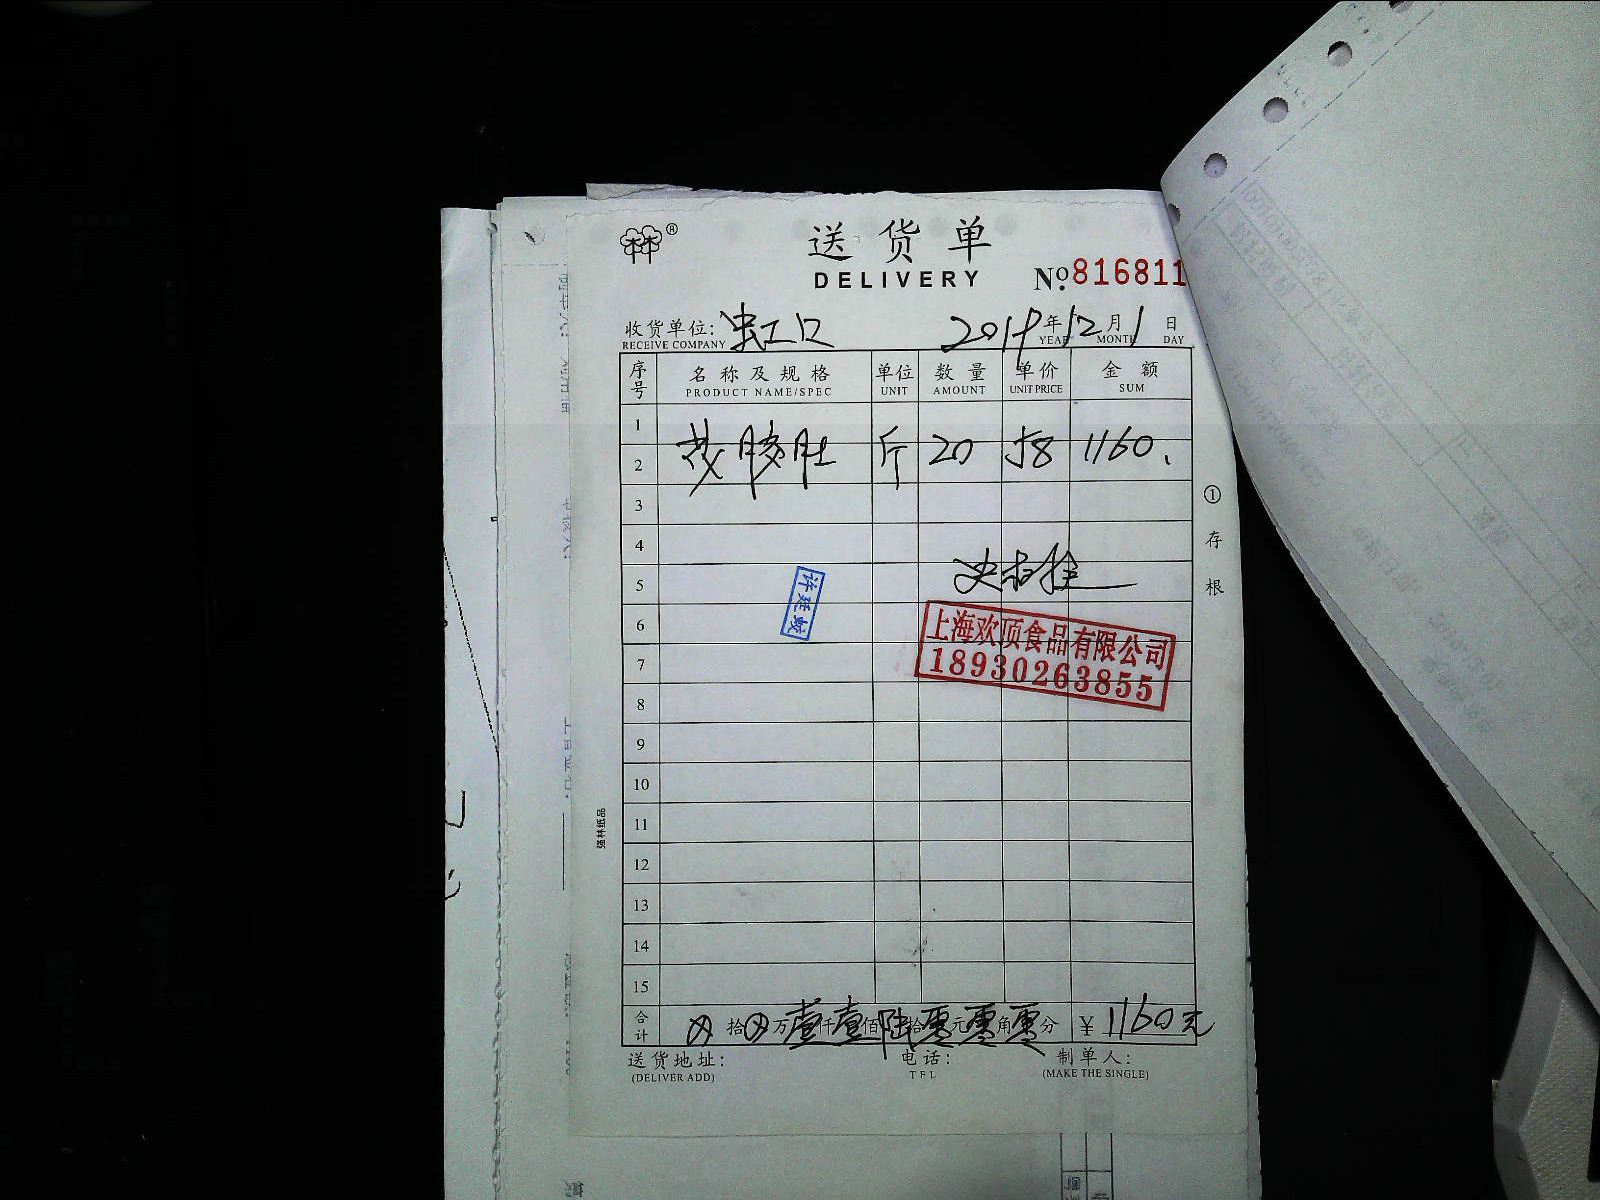 林林®
送货单
DELIVERY
No:816811
收货单位: 虹口 2019年12月1日
RECEIVE COMPANY YEAR MONTH DAY
序号 名称及规格 单位 数量 单价 金额
PRODUCT NAME/SPEC UNIT AMOUNT UNIT PRICE SUM
1
2 斤 20 58 1160.
3
4
5
许延蛟
6
上海欢顶食品有限公司
18930263855
7
8
9
10
11
12
13
14
15
合计 拾 万壹仟壹佰陆拾零元零角零分 ¥1160元
送货地址: 电话: 制单人:
(DELIVER ADD) TEL (MAKE THE SINGLE)
①存根
强林纸品